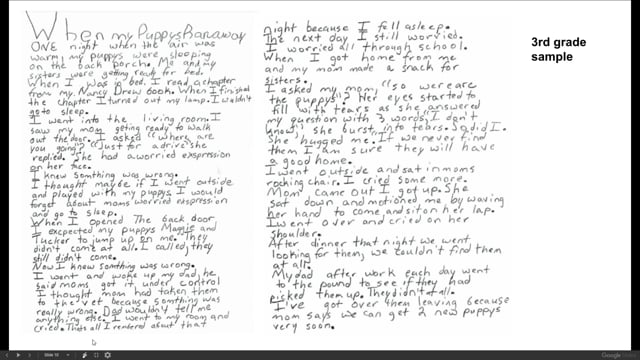 When my Puppys Ranaway
ONE night when the air was
warm, my puppys were sleeping
on the back porch. Me and my
sisters were getting ready for bed.
When I was in bed. I read a chapter
from my Nancy Drew book. When I finished
the chapter I turned out my lamp. I wouldn't
go to sleep.
I went into the living room. I
saw my mom getting ready to walk
out the door. I asked "where are
you going?" "Just for a drive she
replied. She had a worried exspression
on her face.
I knew somthing was wrong.
I thought maybe if I went outside
and played with my puppys I would
forget about moms worried exspression
and go to sleep.
When I opened The back door
I expected my puppys Maggie and
Tucker to jump up on me. They
didn't come at all. I called, they
still didn't come.
Now I knew somthing was wrong.
I went and woke up my dad, he
said moms got it under control
I thought mom had taken them
to the vet because somthing was
really wrong. Dad wouldn't tell me
anything else. I went to my room and
cried. Thats all I rembered about that
night because I fell asleep.
The next day I still worried.
I worried all through school.
When I got home from me
and my mom made a snack for
sisters.
I asked my mom, "so were are
the puppys?" Her eyes started to
fill with tears as she answered
my question with 3 words, "I don't
know" she burst into tears. So did I.
She hugged me. If we never find
them I am sure they will have
a good home.
I went outside and sat in moms
rocking chair. I cried some more.
Mom came out. I got up. She
sat down and motioned me by waving
her hand to come and sit on her lap.
I went over and cried on her
shoulder.
After dinner that night we went
looking for them, we couldn't find them
at all.
My dad after work each day went
to the pound to see if they had
picked them up. They didn't at all.
I've got over them leaving because
mom says we can get 2 new puppys
very soon.
3rd grade
sample
Slide 10
Google Slides